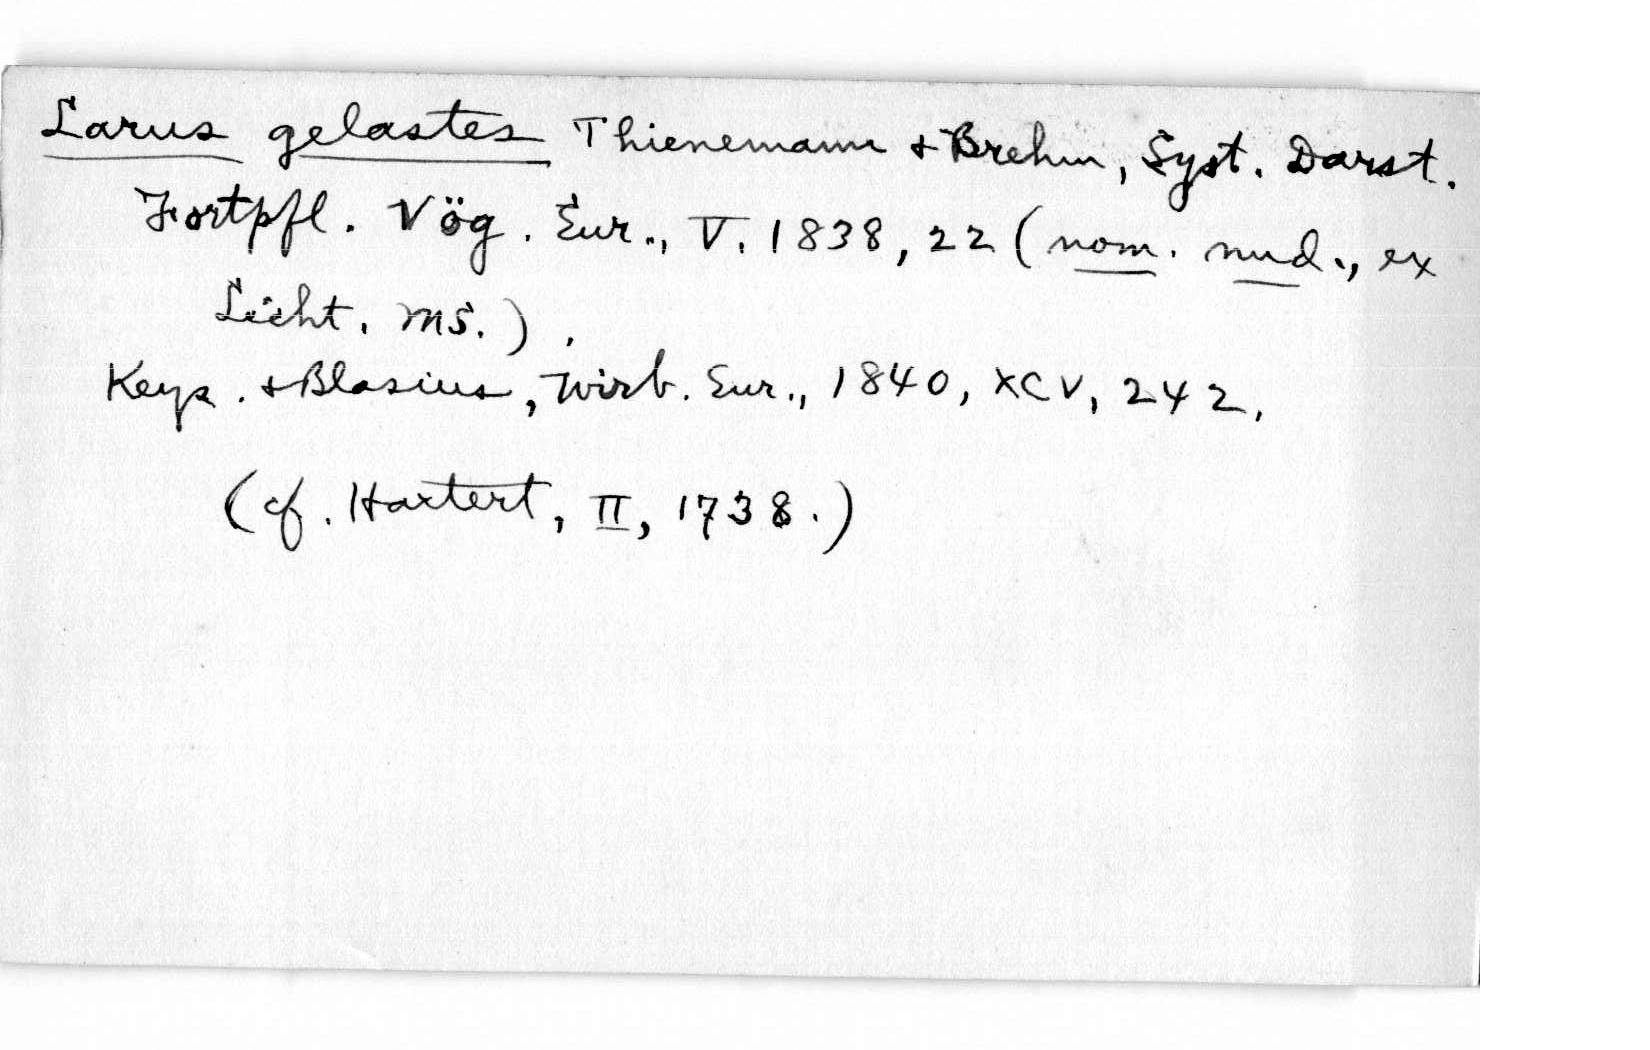 Larus gelastes Thienemann + Brehm, Syst. Darst.
Fortpfl. Vög. Eur., V, 1838, 22 (nom. nud., ex
Licht. MS.),
Keys. + Blasius, Wirb. Eur., 1840, XCV, 242,
(cf. Hartert, II, 1738.)